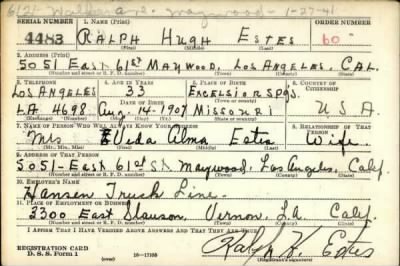 6121 Walker Ave. Maywood - 1-27-41
SERIAL NUMBER 1. NAME (Print) ORDER NUMBER
4483 RALPH HUGH ESTES 60
(First) (Middle) (Last)
2. ADDRESS (Print)
5051 EAST 61ST MAYWOOD, LOS ANGELES, CAL.
(Number and street or R. F. D. number) (Town) (County) (State)
3. TELEPHONE 4. AGE IN YEARS 5. PLACE OF BIRTH 6. COUNTRY OF CITIZENSHIP
LOS ANGELES 33 EXCELSIOR SPGS.
DATE OF BIRTH (Town or county)
LA 4698 Aug 14 1907 MISSOURI U S A
(Exchange) (Number) (Mo.) (Day) (Yr.) (State or country)
7. NAME OF PERSON WHO WILL ALWAYS KNOW YOUR ADDRESS 8. RELATIONSHIP OF THAT PERSON
Mrs Alma Estes Wife.
(Mr., Mrs., Miss) (First) (Middle) (Last)
9. ADDRESS OF THAT PERSON
5051-East 61st St Maywood, Los Angeles, Calif.
(Number and street or R. F. D. number) (Town) (County) (State)
10. EMPLOYER'S NAME
Hansen Truck Line.
11. PLACE OF EMPLOYMENT OR BUSINESS
2300 East Slauson, Vernon, L.A. Calif.
(Number and street or R. F. D. number) (Town) (County) (State)
I AFFIRM THAT I HAVE VERIFIED ABOVE ANSWERS AND THAT THEY ARE TRUE.
REGISTRATION CARD
D. S. S. Form 1 (over) 16-17105 Ralph H. Estes
(Registrant's signature)